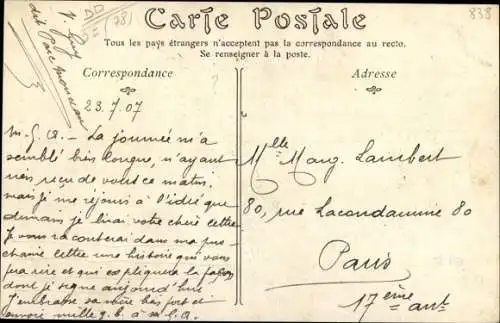 DD
(78)
838
V. Guy
dit Parc Monceau
Carte Postale
Tous les pays étrangers n'acceptent pas la correspondance au recto.
Se renseigner à la poste.
Correspondance
Adresse
23.7.07
M.G.A. - La journée m'a
semblé très longue, n'ayant
rien reçu de vous ce matin,
mais je me réjouis à l'idée que
demain je lirai votre chère lettre
Je vous raconterai dans ma pro-
chaine lettre une histoire qui vous
fera rire et qui expliquera la façon
dont je signe aujourd'hui
J'embrasse sa mère bien fort et
envoie mille g.b. à m.G.A.
Mlle Marg. Lambert
80, rue Lacondamine 80
Paris
17ème arrt